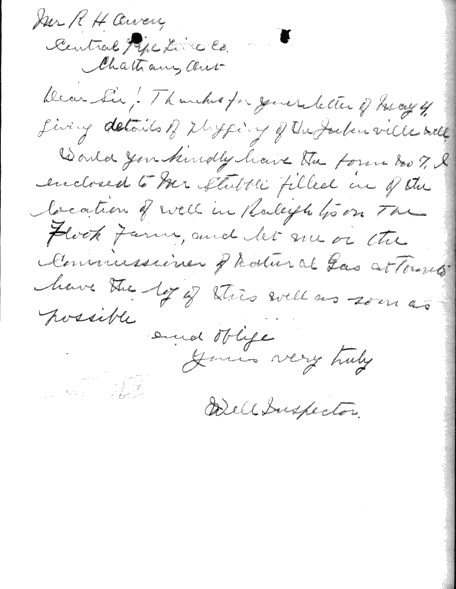 Mr R H Owen,
Central Pipe Line Co.
Chatham, Ont
Dear Sir! Thanks for your letter of May 4,
giving details of plugging of the well
Would you kindly have the form No 7, I
enclosed to Mr Stubble filled in of the
location of well in Raleigh Tp on the
Flook Farm, and let me or the
Commissioner of Natural Gas at Toronto
have the log of this well as soon as
possible
and oblige
Yours very truly
Well Inspector.